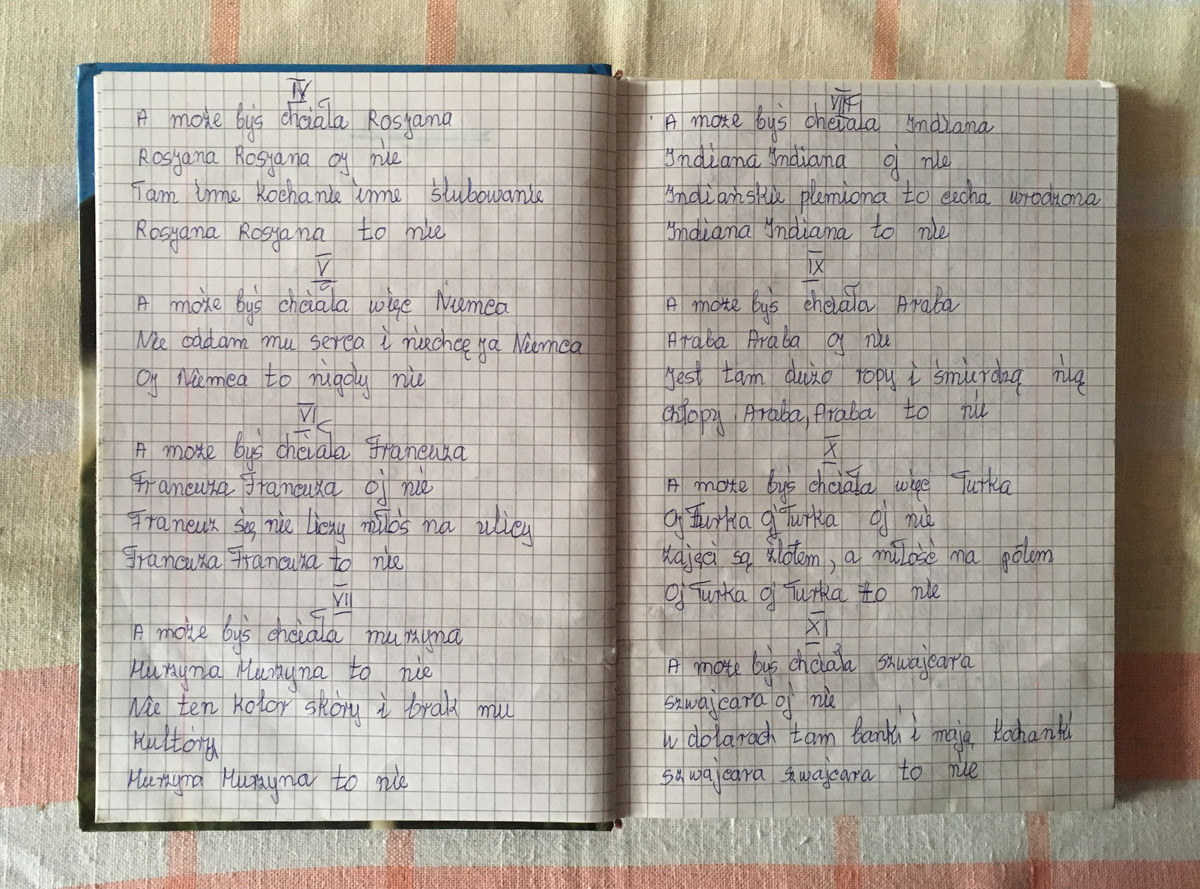 IV
A może byś chciała Rosyana
Rosyana Rosyana oy nie
Tam inne kochanie inne ślubowanie
Rosyana Rosyana to nie
V
A może byś chciała więc Niemca
Nie oddam mu serca i niechcę ja Niemca
Oy Niemca to nigdy nie
VI
A może byś chciała Francuza
Francuza Francuza oj nie
Francuz się nie liczy miłoś na ulicy
Francuza Francuza to nie
VII
A może byś chciała murzyna
Murzyna Murzyna to nie
Nie ten kolor skóry i brak mu
kultóry
Murzyna Murzyna to nie
VIII
A może byś chciała Indiana
Indiana Indiana oj nie
Indiańskie plemiona to cecha wrodzona
Indiana Indiana to nie
IX
A może byś chciała Araba
Araba Araba oj nie
Jest tam dużo ropy i śmierdzą nią
chłopy Araba, Araba to nie
X
A może byś chciała więc Turka
Oj Turka oj Turka oj nie
zajęci są złotem, a miłość na potem
Oj Turka oj Turka to nie
XI
A może byś chciała szwajcara
szwajcara oj nie
w dolarach tam banki i mają kochanki
szwajcara szwajcara to nie